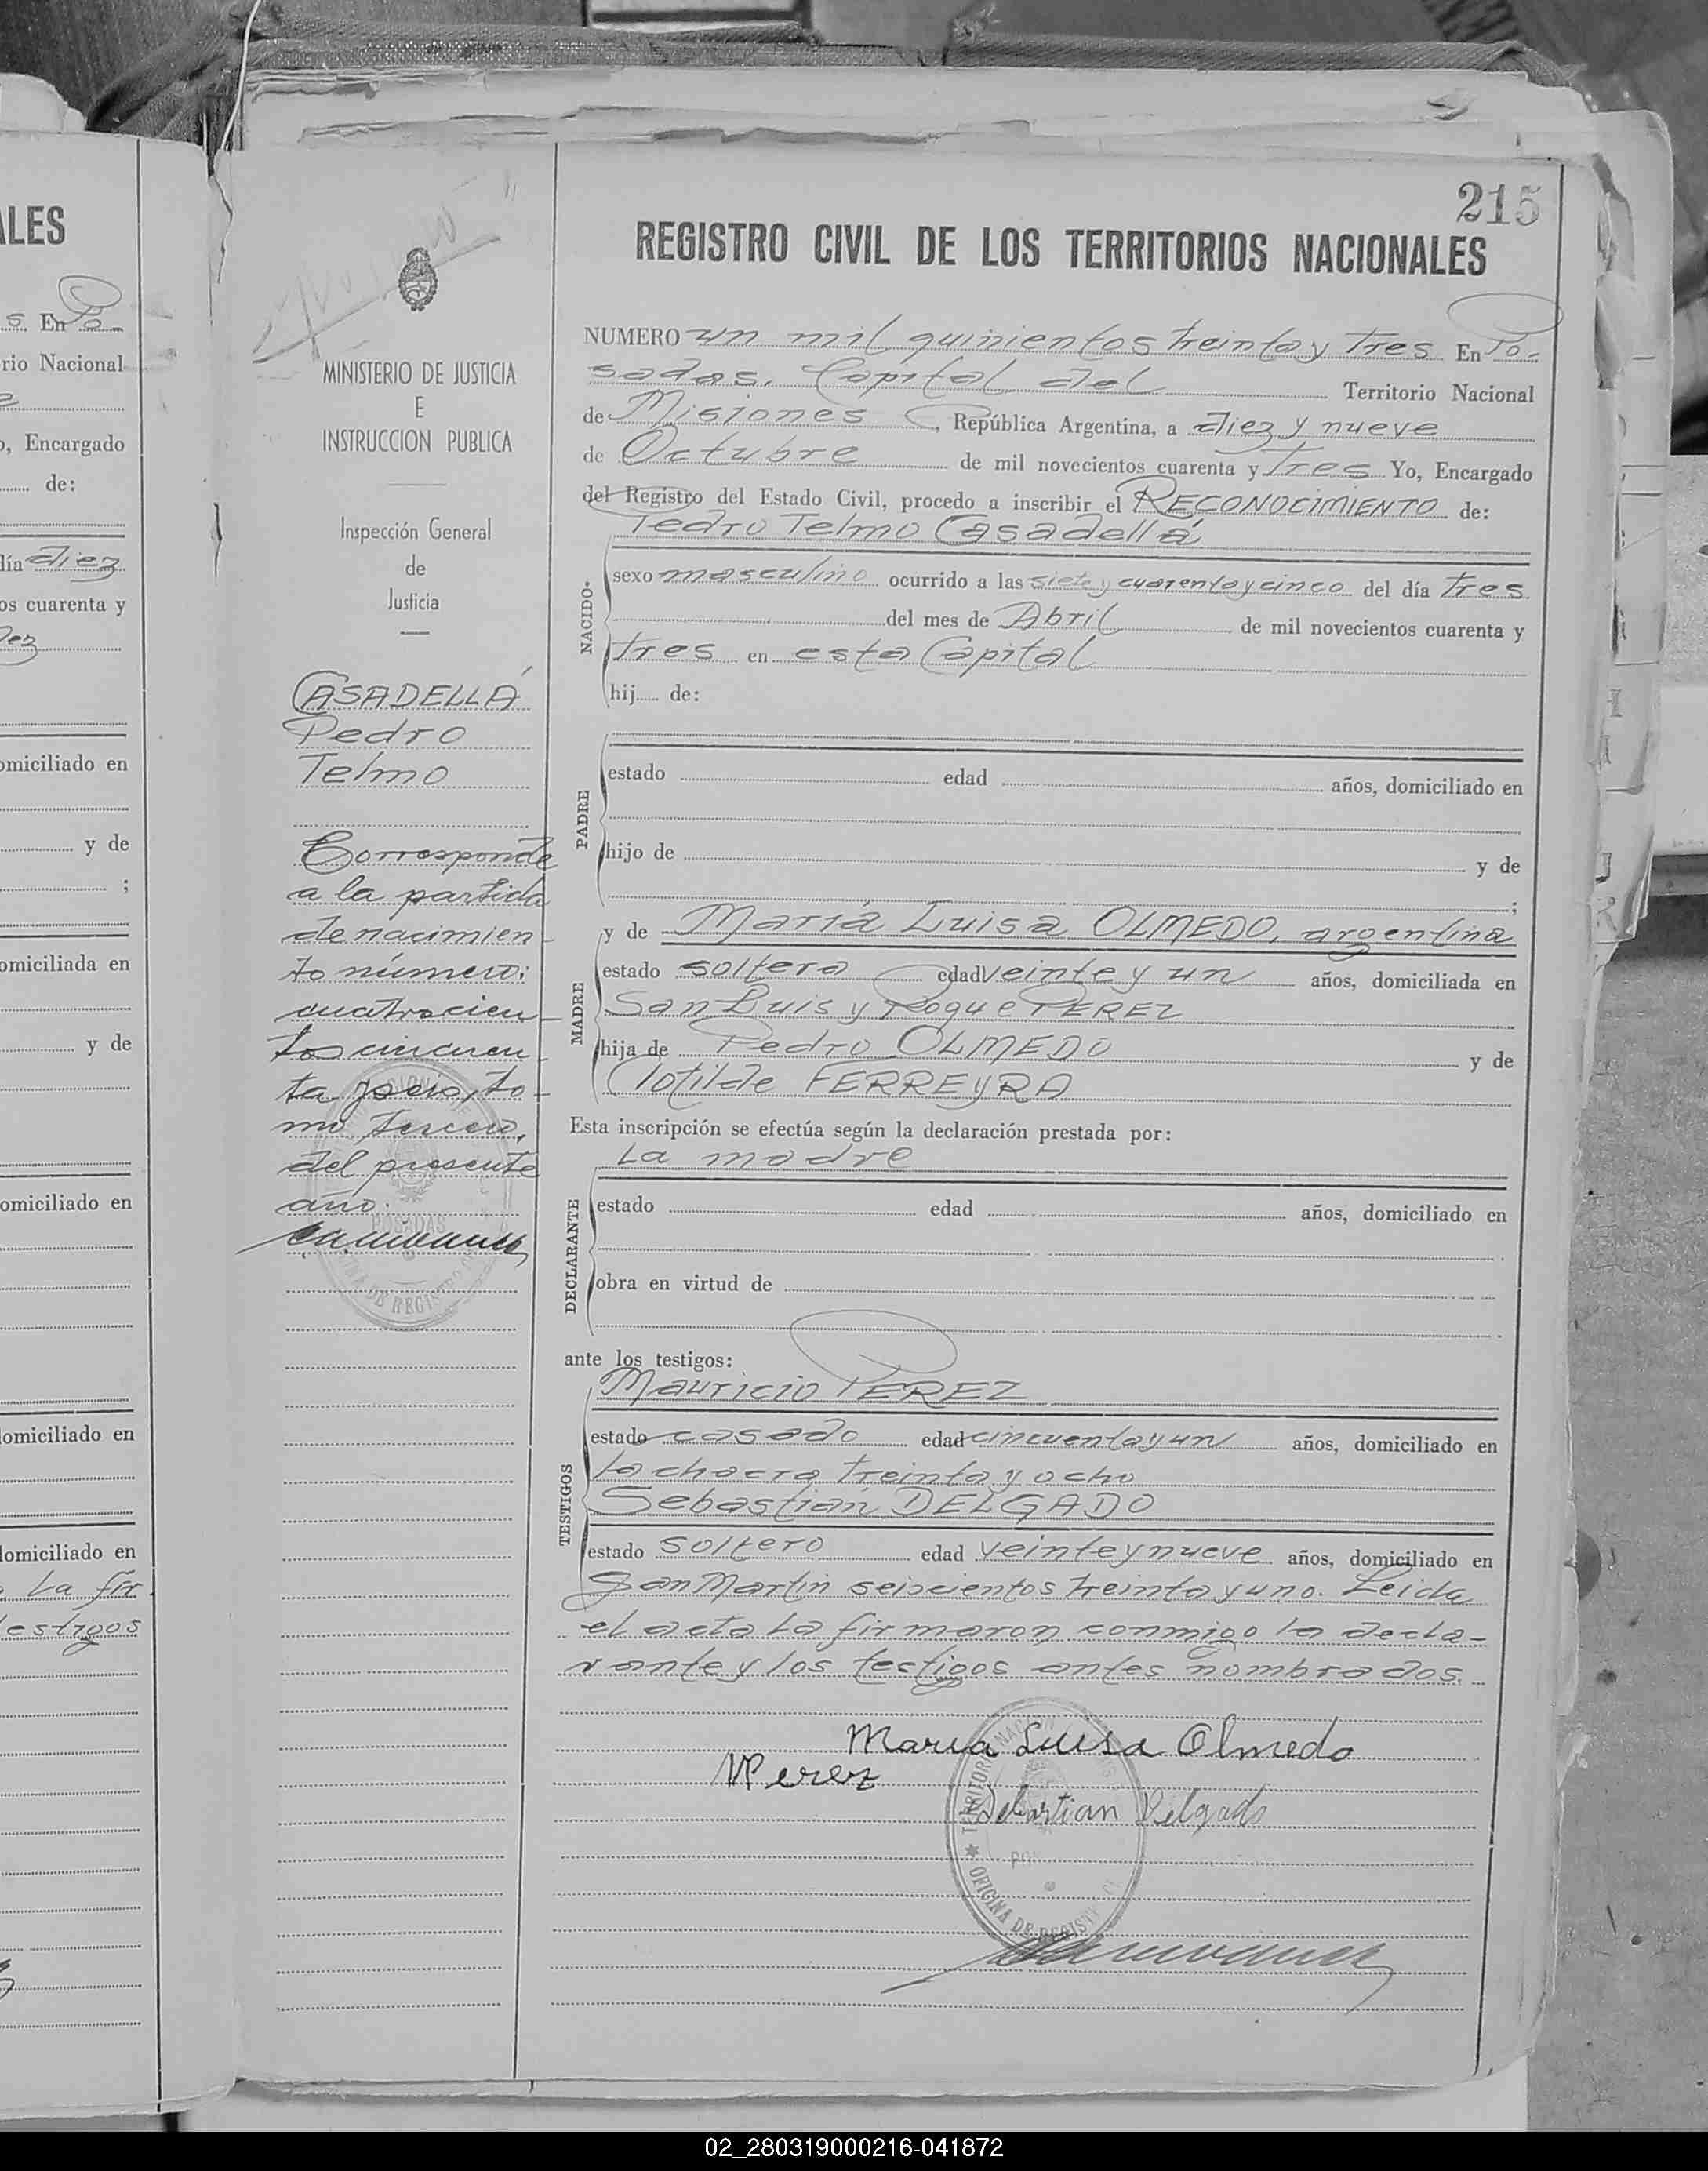 ALES
s. En Po-
rio Nacional
o, Encargado
de:
día diez
os cuarenta y
omiciliado en
y de
;
omiciliada en
y de
omiciliado en
domiciliado en
domiciliado en
La fir
estigos
215
MINISTERIO DE JUSTICIA
E
INSTRUCCION PUBLICA
Inspección General
de
Justicia
CASADELLÁ
Pedro
Telmo
Corresponde
a la partida
de nacimien-
to número:
cuatrocien-
tos cincuen-
ta y seis, to-
mo tercero,
del presente
año.
POSADAS
REGISTRO CIVIL DE LOS TERRITORIOS NACIONALES
NUMERO un mil quinientos treinta y tres En Po-
sadas. Capital del Territorio Nacional
de Misiones, República Argentina, a diez y nueve
de Octubre de mil novecientos cuarenta y tres Yo, Encargado
del Registro del Estado Civil, procedo a inscribir el RECONOCIMIENTO de:
Pedro Telmo Casadellá
NACIDO.
sexo masculino ocurrido a las siete y cuarenta y cinco del día tres
del mes de Abril de mil novecientos cuarenta y
tres en esta Capital
hij de:
PADRE
estado edad años, domiciliado en
hijo de y de
;
y de María Luisa OLMEDO, argentina
MADRE
estado soltera edad veinte y un años, domiciliada en
San Luis y Roque PEREZ
hija de Pedro OLMEDO y de
Clotilde FERREYRA
Esta inscripción se efectúa según la declaración prestada por:
La madre
DECLARANTE
estado edad años, domiciliado en
obra en virtud de
ante los testigos:
Mauricio PEREZ
TESTIGOS
estado casado edad cincuenta y un años, domiciliado en
La chacra treinta y ocho
Sebastián DELGADO
estado soltero edad veinte y nueve años, domiciliado en
San Martín seiscientos treinta y uno. Leida
el acta la firmaron conmigo la decla-
rante y los testigos antes nombrados.
Maria Luisa Olmedo
MPerez
Sebastian Delgado
OFICINA DE REGISTRO
02_280319000216-041872